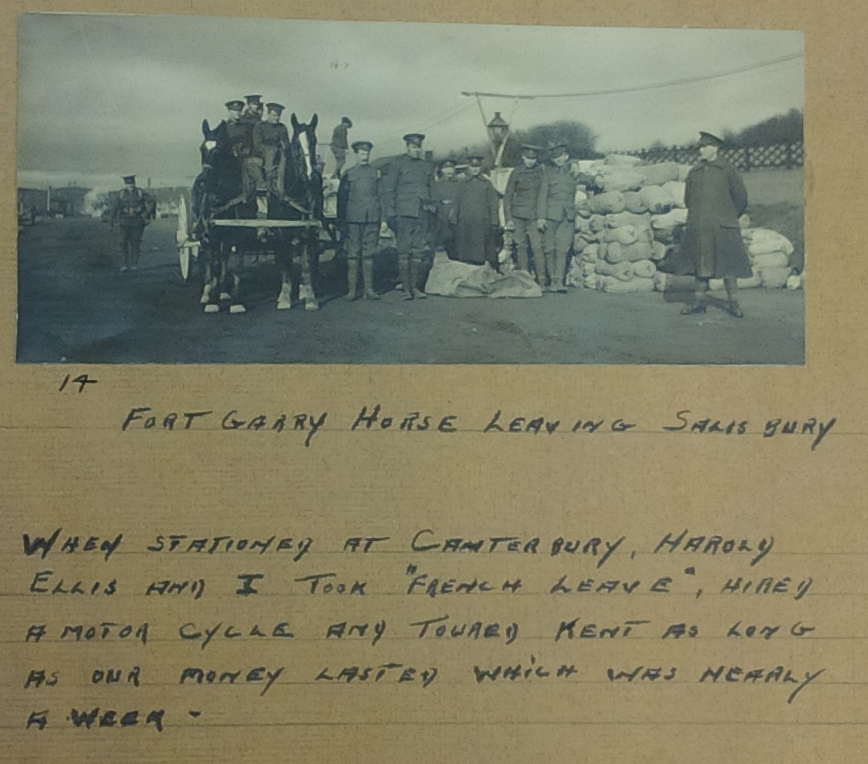 14
FORT GARRY HORSE LEAVING SALISBURY
WHEN STATIONED AT CANTERBURY, HAROLD
ELLIS AND I TOOK "FRENCH LEAVE", HIRED
A MOTOR CYCLE AND TOURED KENT AS LONG
AS OUR MONEY LASTED WHICH WAS NEARLY
A WEEK -